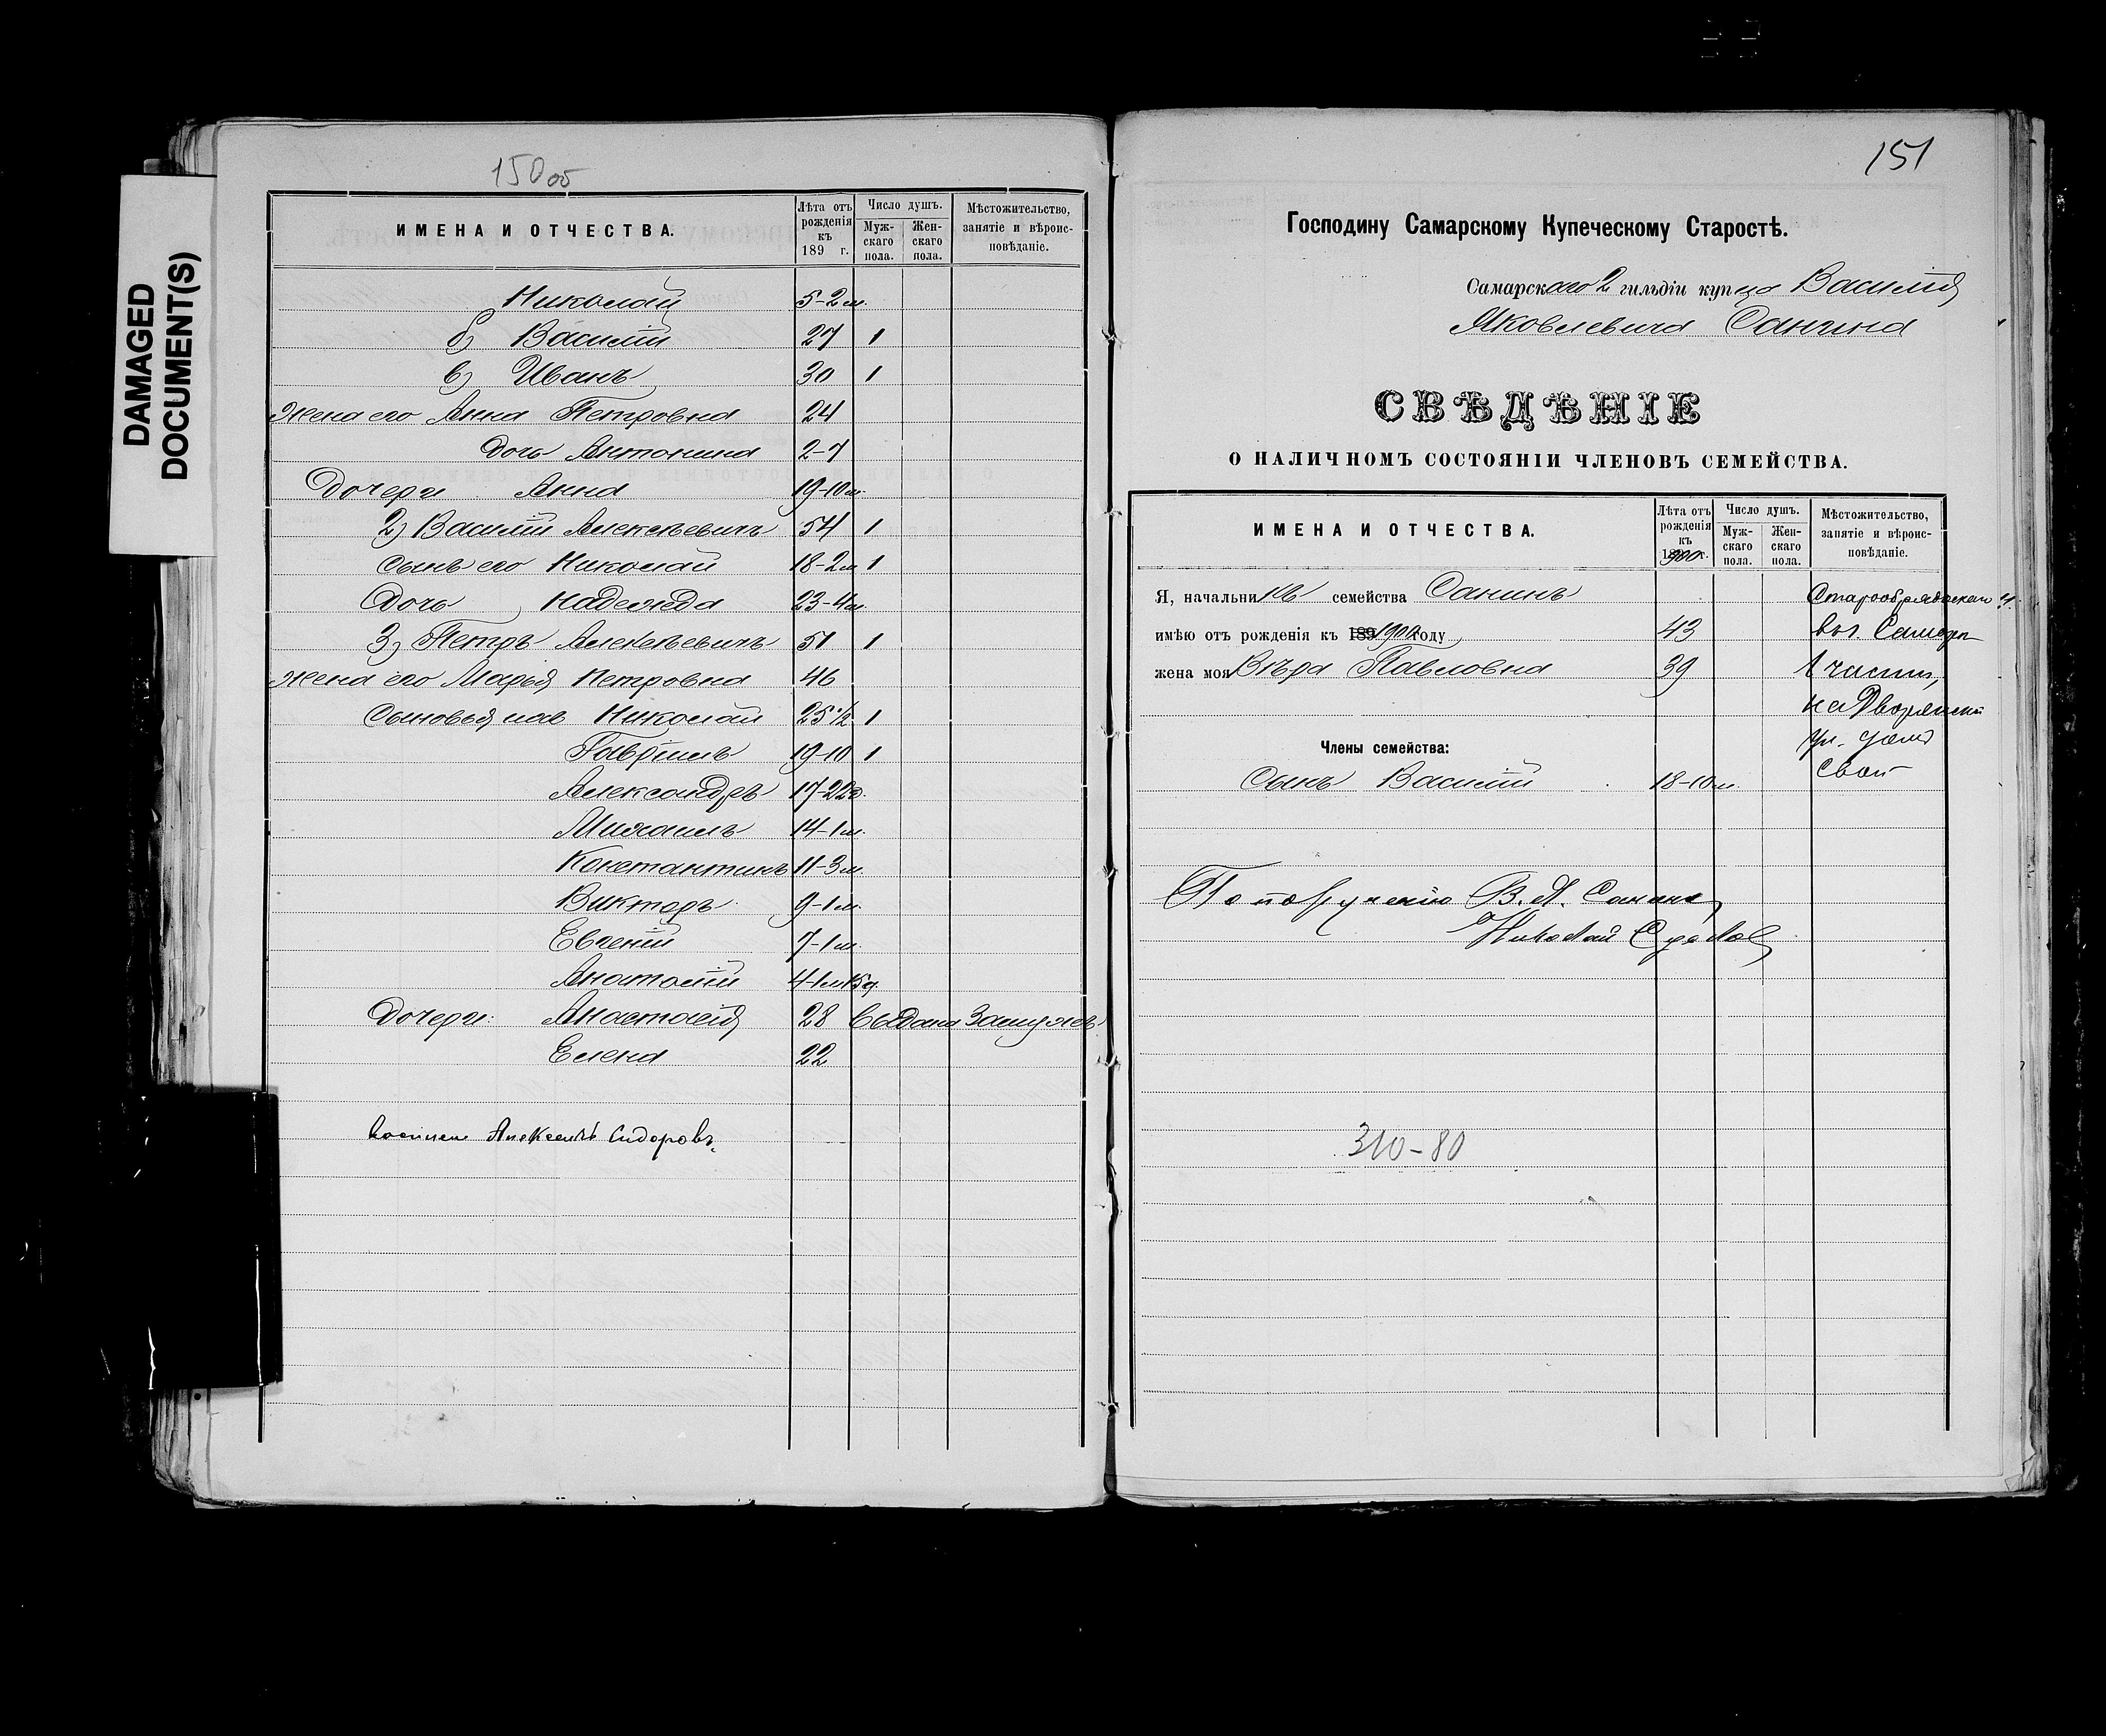 DAMAGED
DOCUMENT(S)
150 об
ИМЕНА И ОТЧЕСТВА.
Лѣта отъ рожденія къ 189 г.
Число душъ.
Мужскаго пола.
Женскаго пола.
Мѣстожительство, занятіе и вѣроисповѣданіе.
Николай 5-2 м.
б) Василій 27 1
в) Иванъ 30 1
Жена его Анна Петровна 24
Дочь Антонина 2-7
Дочери Анна 19-10 м.
2) Василій Алексѣевичъ 54 1
Сынъ его Николай 18-2 м 1
Дочь Надежда 23-4 м.
3) Петръ Алексѣевичъ 51 1
Жена его Марья Петровна 46
Сыновья Николай 25 1/2 1
Гавріилъ 19-10 1
Александръ 17-22 д.
Михаилъ 14-1 м.
Константинъ 11-3 м.
Викторъ 9-1 м.
Евгеній 7-1 м.
Анатолій 4-1 м 15 д.
Дочери: Анастасія 28 выдана замужъ
Елена 22
Алексѣевъ Сидоровъ.
151
Господину Самарскому Купеческому Старостѣ.
Самарскаго 2 гильдіи купца Василія
Яковлевича Санина
СВѢДѢНІЕ
О НАЛИЧНОМЪ СОСТОЯНІИ ЧЛЕНОВЪ СЕМЕЙСТВА.
ИМЕНА И ОТЧЕСТВА.
Лѣта отъ рожденія къ 1900 г.
Число душъ.
Мужскаго пола.
Женскаго пола.
Мѣстожительство, занятіе и вѣроисповѣданіе.
Я, начальникъ семейства Санинъ
имѣю отъ рожденія къ 189 1900 году 43 въ г. Самарѣ
жена моя Вѣра Павловна 39 1 части,
на Дворянской
Члены семейства: ул. домъ
Сынъ Василій 18-10 м. свой
По порученію В. Я. Санина
Николай
310-80